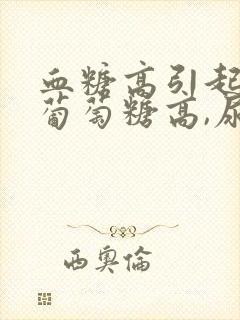 血糖高引起
葡萄糖高,尿
西奥倫